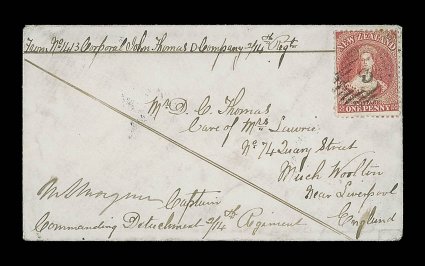 From No 1413 Corporal John Thomas D Company 2/14th Regt
NEW ZEALAND
ONE PENNY
Mr D. C. Thomas
Care of Mrs
No 74 Quary Street
Much Woolton
Near Liverpool
England
Captain
Commanding Detachment 2/14th Regiment